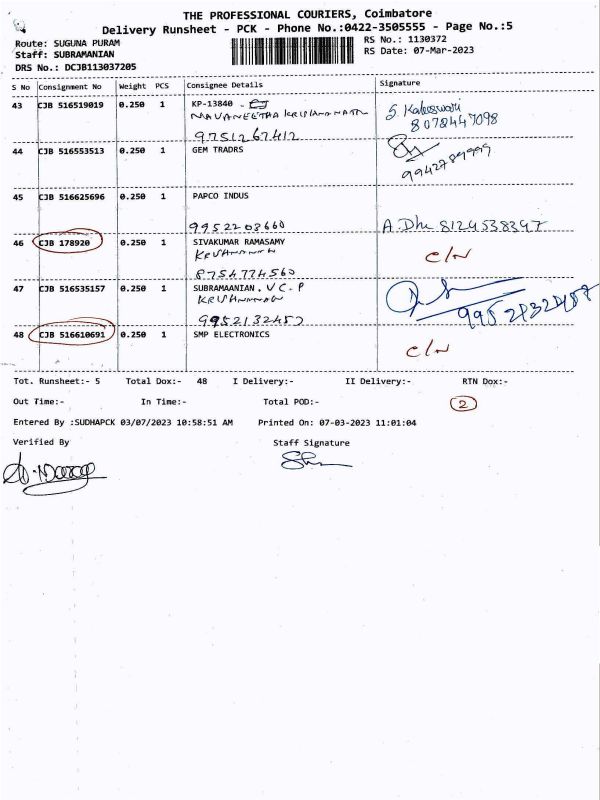 THE PROFESSIONAL COURIERS, Coimbatore
Delivery Runsheet - PCK - Phone No.:0422-3505555 - Page No.:5
Route: SUGUNA PURAM
RS No.: 1130372
Staff: SUBRAMANIAN
RS Date: 07-Mar-2023
DRS No.: DCJB113037205
S No Consignment No Weight PCS Consignee Details Signature
43 CJB 516519019 0.250 1 KP-13840 -
NAVANEETHA KRISHNANATN
S. Kaleeswari
8078447098
9751267412
44 CJB 516553513 0.250 1 GEM TRADRS
9942789999
45 CJB 516625696 0.250 1 PAPCO INDUS
9952208660
A. Dhu 8124538347
46 CJB 178920 0.250 1 SIVAKUMAR RAMASAMY
C/N
8754774560
47 CJB 516535157 0.250 1 SUBRAMAANIAN. V C. P
9952132457
48 CJB 516610691 0.250 1 SMP ELECTRONICS
C/N
Tot. Runsheet:- 5 Total Dox:- 48 I Delivery:- II Delivery:- RTN Dox:-
Out Time:- In Time:- Total POD:- 2
Entered By :SUDHAPCK 03/07/2023 10:58:51 AM Printed On: 07-03-2023 11:01:04
Verified By Staff Signature